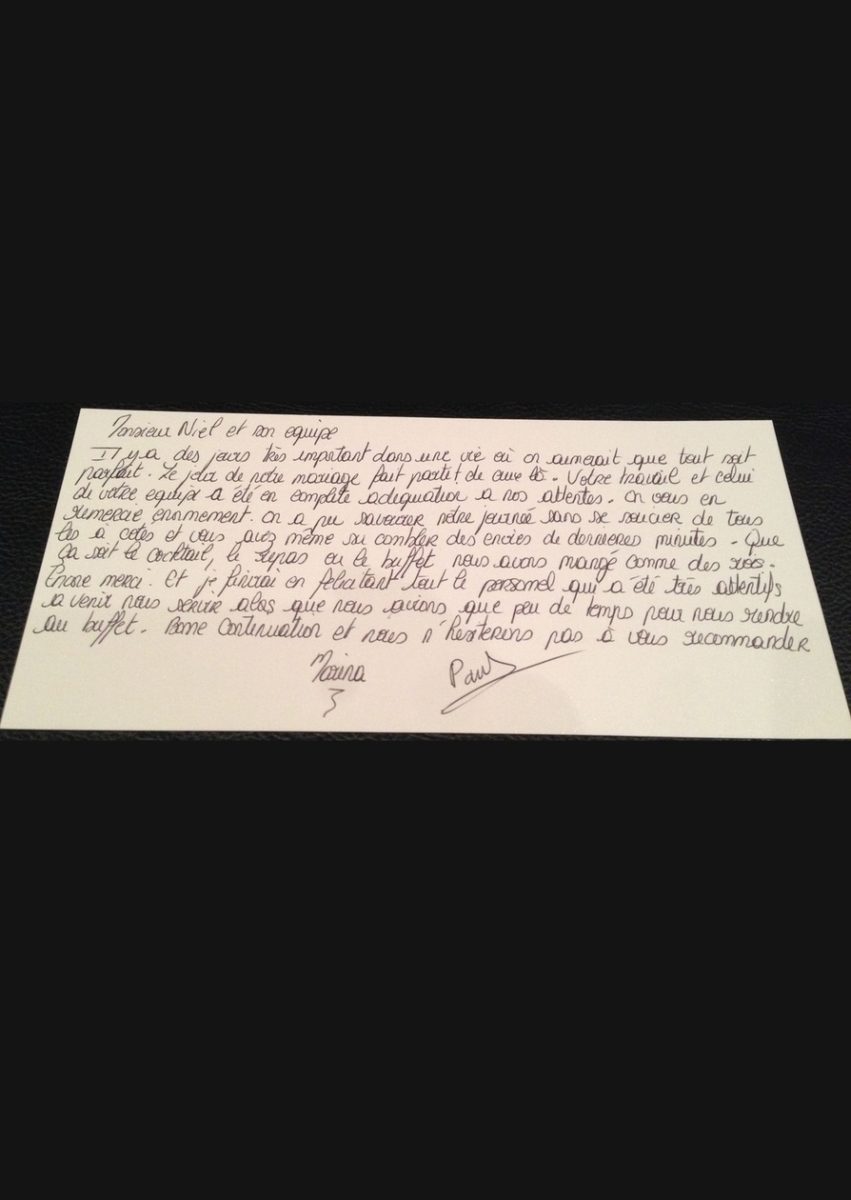 Monsieur Niel et son equipe
Il y a des jours très important dans une vie où on aimerait que tout soit
parfait. Le jour de notre mariage fait partit de ceux là. Votre travail et celui
de votre equipe a été en complète adequation a nos attentes. On vous en
remercie enormement. On a pu savourer nôtre journée sans se soucier de tous
les à cotes et vous avez même su combler des envies de dernieres minutes. Que
ça soit le cocktail, le repas ou le buffet nous avons mangé comme des rois.
Encore merci. Et je finirai en felicitant tout le personel qui a été très attentifs
a venir nous servir alors que nous avions que peu de temps pour nous rendre
au buffet. Bonne Continuation et nous n'hesiterons pas à vous recommander
Marina Paul